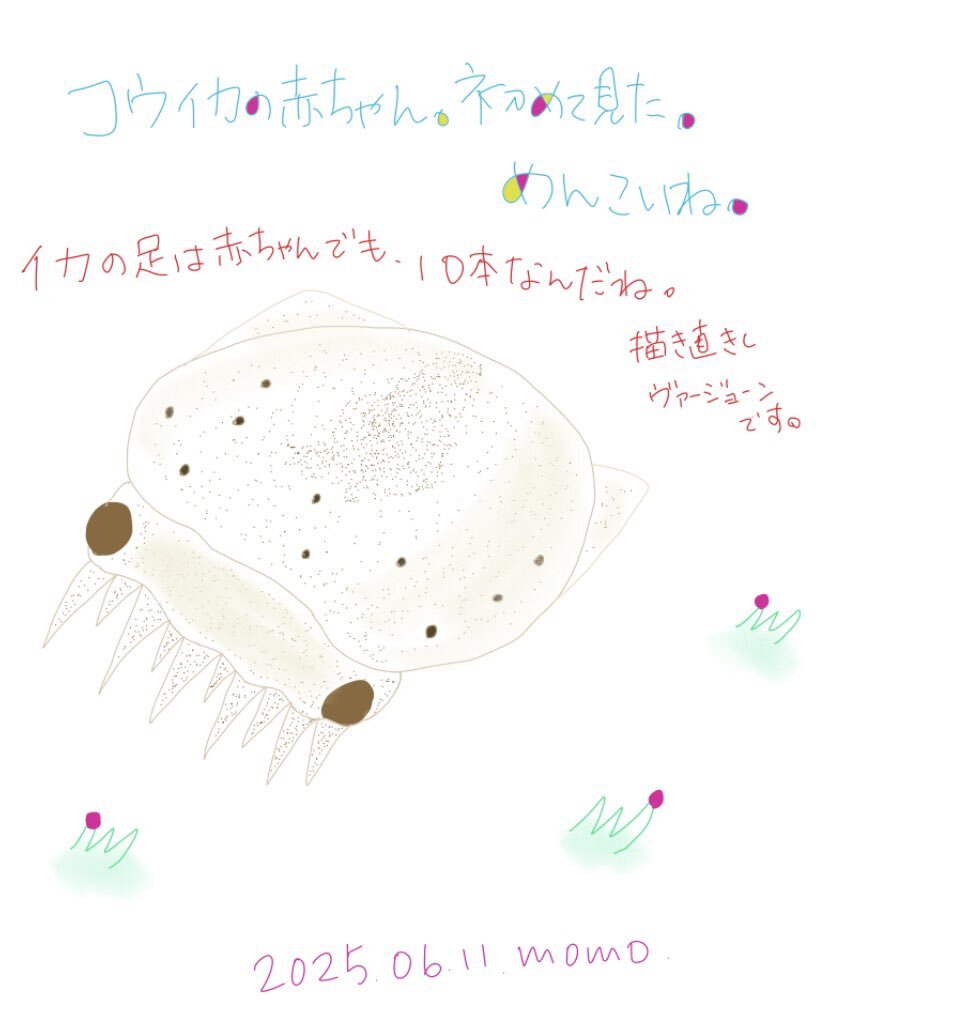 コウイカの赤ちゃん。初めて見た。
めんこいね。
イカの足は赤ちゃんでも、10本なんだね。
描き直きし
ヴァージョーン
です。
2025.06.11.momo.